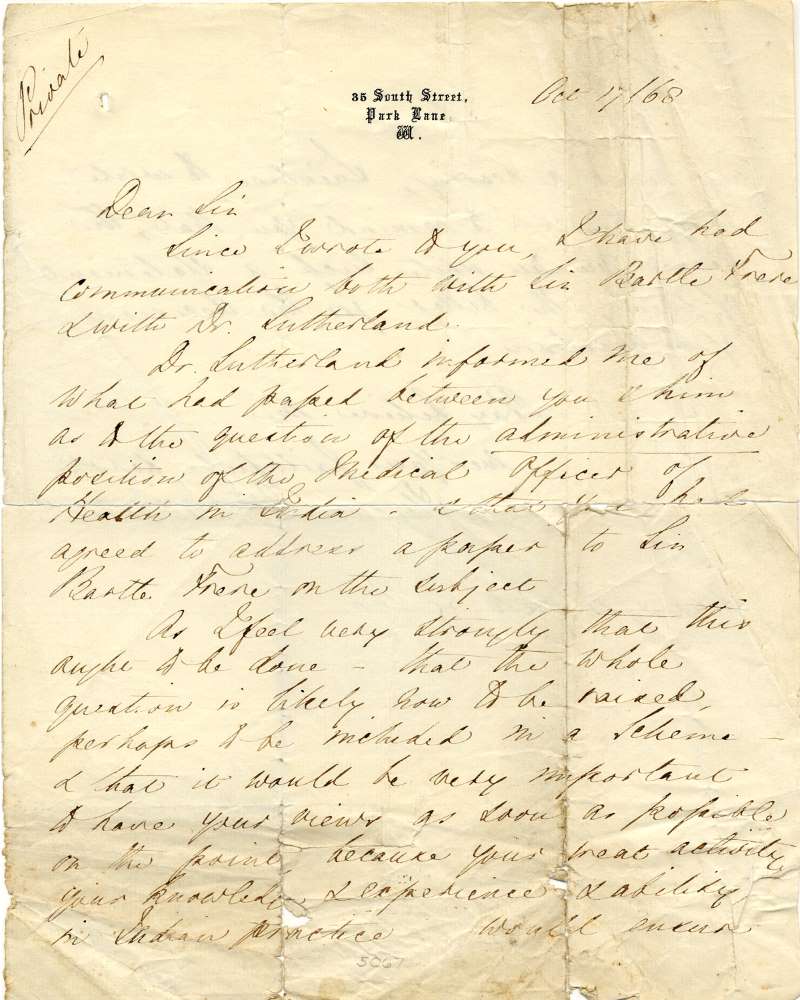 Private
35 South Street,
Park Lane
W.
Oct 17/68
Dear Sir
Since I wrote to you, I have had
communication both with Sir Bartle Frere
& with Dr. Sutherland.
Dr. Sutherland informed me of
what had passed between you & him
as to the question of the administrative
position of the Medical Officer of
Health in India - & that you had
agreed to address a paper to Sir
Bartle Frere on the subject
As I feel very strongly that this
ought to be done - that the whole
question is likely now to be raised,
perhaps to be included in a Scheme -
& that it would be very important
to have your views as soon as possible
on the point, because your great activity,
your knowledge & experience & ability
in Indian practice would ensure
5067